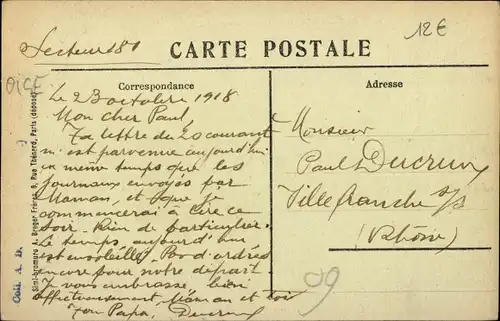 Secteur 181
12€
CARTE POSTALE
OISE
Correspondance
Adresse
Le 23 octobre 1918
Mon cher Paul,
Ta lettre du 20 courant
m'est parvenue aujourd'hui
en même temps que les
journaux envoyés par
Maman, et que je
commencerai à lire ce
soir. Rien de particulier.
Le temps, aujourd'hui
est ensoleillé. Pas d'ordres
encore pour notre départ
Je vous embrasse, bien
affectueusement, Maman et toi
Ton Papa, Ducrun
Monsieur
Paul Ducrun
Villefranche s/s
(Rhône)
09
Coll. A. D.
Simi-bromure A. Breger Frères, 9, Rue Thénard, Paris (déposé)